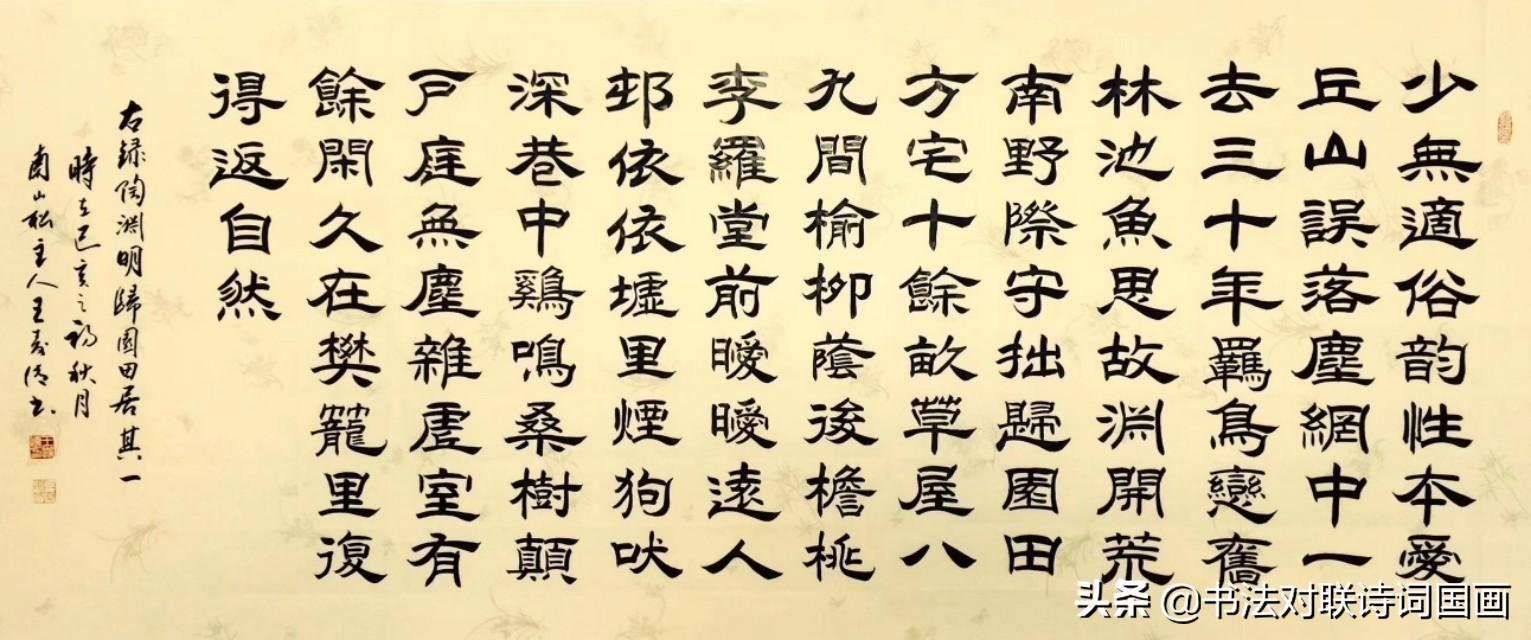 少無適俗韵性本愛
丘山誤落塵網中一
去三十年羈鳥戀舊
林池魚思故淵開荒
南野際守拙歸園田
方宅十餘畝草屋八
九間榆柳蔭後檐桃
李羅堂前曖曖遠人
邨依依墟里煙狗吠
深巷中鷄鳴桑樹顛
戶庭無塵雜虛室有
餘閑久在樊籠里復
得返自然
右録陶淵明歸園田居其一
時在己亥之初秋月
南山松主人王壽清书
头条 @书法对联诗词国画